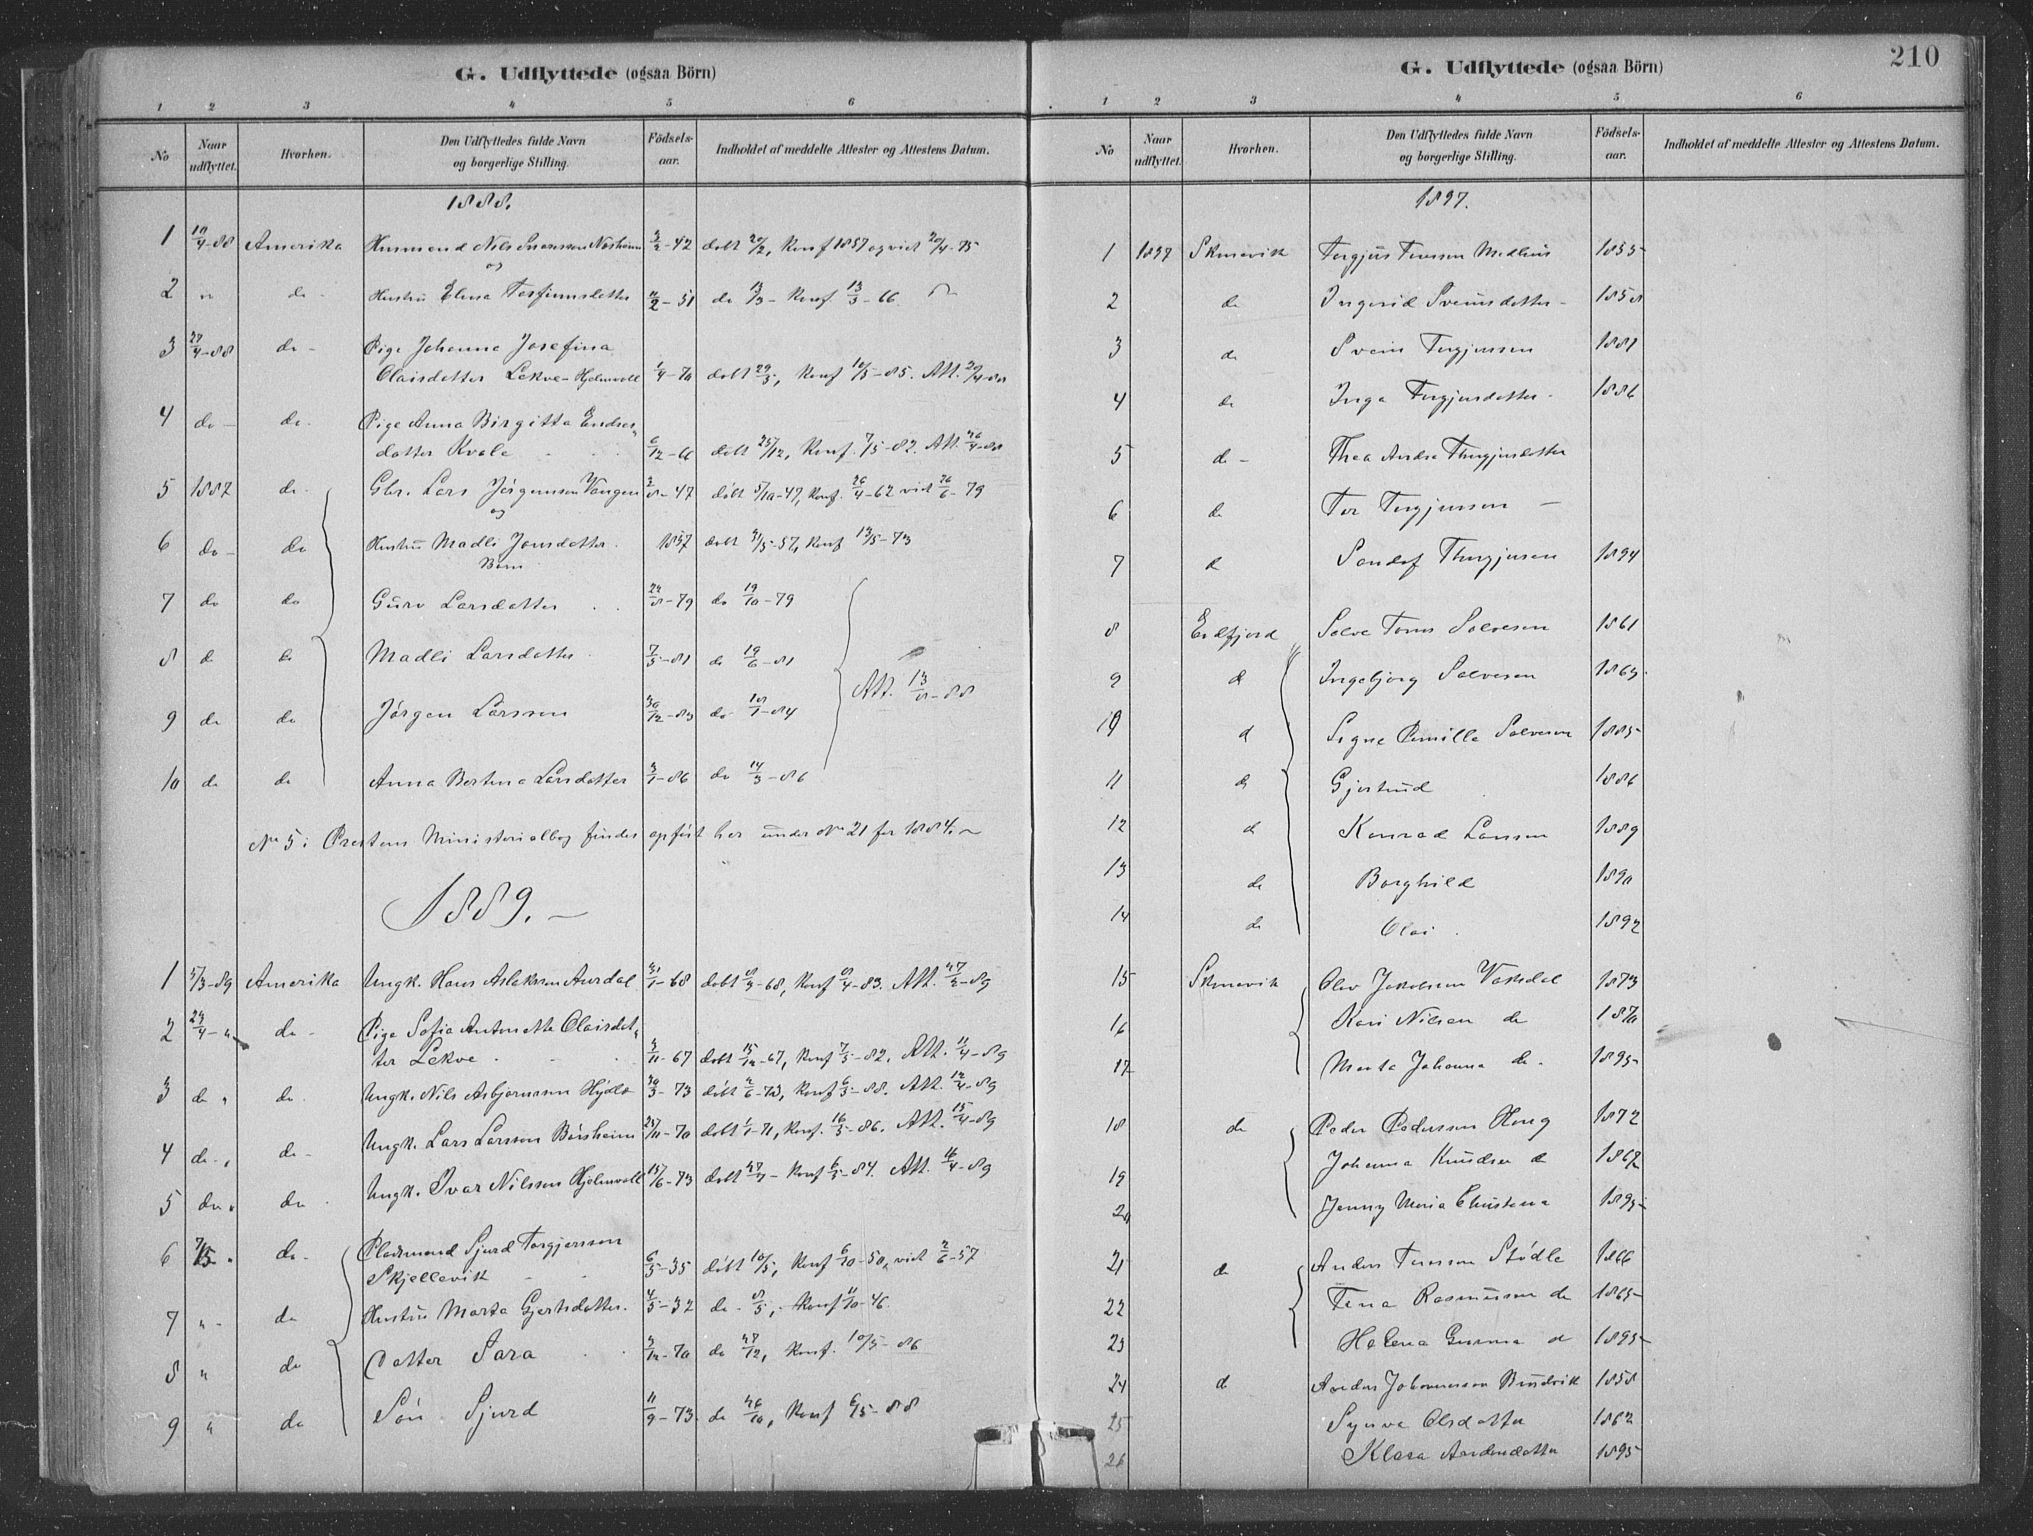 G. Udflyttede (ogsaa Börn)
1 2 3 4 5 6
No Naar udflyttet. Hvorhen. Den Udflyttedes fulde Navn og borgerlige Stilling. Födsels-aar. Indholdet af meddelte Attester og Attestens Datum.
1888.
1 10/4-88 Amerika Husmand Nils -42 döbt 20/2, Konf 1857 og viet 20/4-75
og
2 " do - Hustru Elina Torfinnsdatter 11/2-51 do 13/3 - Konf 13/3-66
3 27/4-88 do - Pige Johanne Josefina
Olaisdatter Lekve-Hjelmvoll 1/4-70 döbt 29/5, Konf 10/5-85. Att. 20/4-88
4 do - do. Pige Anna Birgitta Endres-
datter Kvale 6/12-66 döbt 25/12, Konf. 7/5-82. Att. 26/4-88
5 1887 do - Gbr. Lars Jørgensen Vangen 2/8-47 döbt 5/10-47, Konf. 26/4-62 viet 26/6-79
og
6 do - do Hustru Madli Jonsdatter. 1857 döbt 31/5-57, Konf 18/5-73
Börn
7 do do Guro Larsdatter 24/8-79 do 19/10-79
8 do do Madli Larsdatter 7/5-81 do 19/6-81
Att. 13/8-88
9 do do Jørgen Larssen 30/12-83 do 10/1-84
10 do do Anna Bertina Larsdatter 3/1-86 do 14/3-86
No 5 i Prestens Ministerialbog findes opført her under No 21 for 1884. -
1889. -
1 5/3-89 Amerika Ungk. Hans Aslaksen Aurdal 31/1-68 døbt 8/3-68, Konf 8/4-83. Att. 27/2-89
2 24/4-" do - Pige Sofia Antonette Olaisdat-
ter Lekve 3/11-67 døbt 15/12-67, Konf 7/5-82. Att. 11/4-89
3 do " do Ungk. Nils Asbjørnsen Hydle 30/3-73 døbt 2/6-73, Konf 6/5-88. Att. 12/4-89
4 do " do - Ungk. Lars Larssen Børsheim 25/11-70 døbt 1/1-71, Konf. 16/5-86. Att. 15/4-89
5 do " do Ungk. Ivar Nilssen Hjelmvoll 15/6-73 døbt 27/7 - Konf Att. 16/4-89
6 7/5 " do - Pladsmand Sjurd Torgjersson
Skjellevik 6/5-35 døbt 10/5, Konf 6/10-50, viet 2/6-57
7 " - do Hustru Marta Gjertsdatter. 4/5-32 do - 8/5, - Konf 11/10-46
8 " do Datter Sara 3/12-70 do 27/12, Konf. 10/5-86
9 " do Søn Sjurd 11/9-73 do 26/10, Konf 6/5-88
G. Udflyttede (ogsaa Börn) 210
1 2 3 4 5 6
No Naar udflyttet. Hvorhen. Den Udflyttedes fulde Navn og borgerlige Stilling. Födsels-aar. Indholdet af meddelte Attester og Attestens Datum.
1897.
1 1897 Skonevik Torgjus Toresen Medhus 1855
2 do Ingerid Sveinsdatter - 1858
3 do Svein Torgjusen 1881
4 do Inga Torgjusdatter - 1886
5 do - Thea Andrea Thorgjusdatter
6 do Tor Torgjussen -
7 do Sondof Thorgjusen 1894
8 Erdfjord Salve Tomas Salvesen 1861
9 d Ingebjorg Salvesen 1863
10 d Signe Pernille Salvesen 1885
11 do Gjertrud 1886
12 d Konrad Lanssen 1889
13 do Borghild 1890
14 do Olai 1892
15 Skonevik Olav Jakobsen Vaksdal 1873
16 Kari Nilsen do 1870
17 Marta Johanna do. 1895
18 do Peder Pedersen Houg 1872
19 Johanna Knudsen do 1867
20 Jenny Maria Christena 1895
21 do Anders Toresson Stødle 1866
22 Tena Rasmussen do 1865
23 Helena Gurina do 1895
24 d Anders Johannessen Bundvik 1858
25 Synva Olsdatter 1862
26 Klara Andersdatter 1895